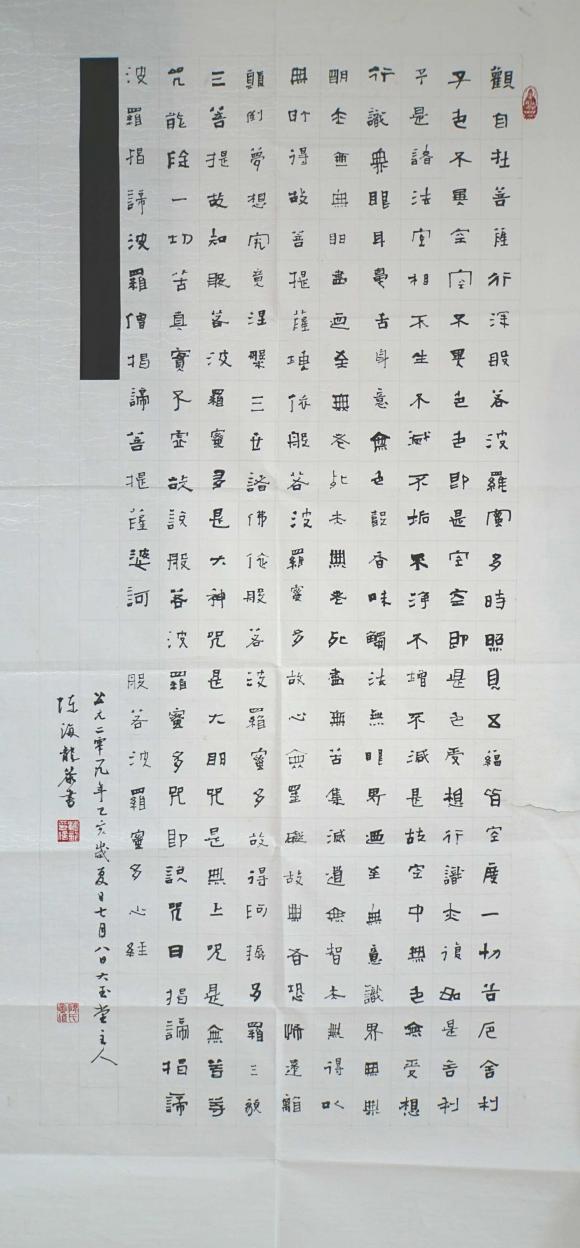 觀自在菩薩行深般若波羅蜜多時照見五蘊皆空度一切苦厄舍利
子色不異空空不異色色即是空空即是色受想行識亦復如是舍利
子是諸法空相不生不滅不垢不淨不增不減是故空中無色無受想
行識無眼耳鼻舌身意無色聲香味觸法無眼界乃至無意識界無無
明亦無無明盡乃至無老死亦無老死盡無苦集滅道無智亦無得以
無所得故菩提薩埵依般若波羅蜜多故心無罣礙故無有恐怖遠離
顛倒夢想究竟涅槃三世諸佛依般若波羅蜜多故得阿耨多羅三藐
三菩提故知般若波羅蜜多是大神咒是大明咒是無上咒是無等等
咒能除一切苦真實不虛故說般若波羅蜜多咒即說咒曰揭諦揭諦
波羅揭諦波羅僧揭諦菩提薩婆訶 般若波羅蜜多心經
公元二零一九年己亥歲夏日七月八日大玉堂主人
陈海龍書